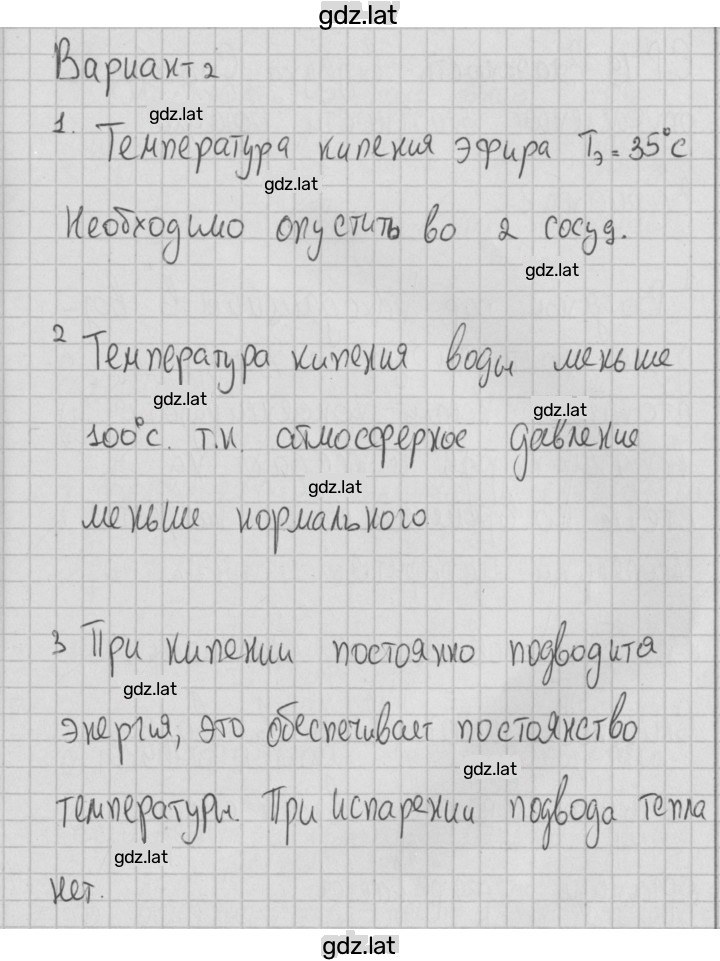 gdz.lat
Вариант 2
gdz.lat
1. Температура кипения эфира Tэ = 35°С
gdz.lat
Необходимо опустить во 2 сосуд.
gdz.lat
2 Температура кипения воды меньше
gdz.lat
gdz.lat
100°С. т.к. атмосферное давление
gdz.lat
меньше нормального
3 При кипении постоянно подводита
gdz.lat
энергия, это обеспечивает постоянство
gdz.lat
температуры. При испарении подвода тепла
gdz.lat
нет.
gdz.lat